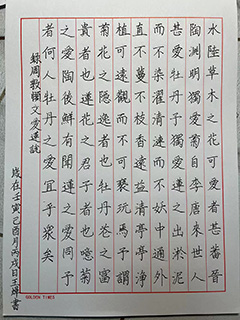 水陸草木之花可愛者甚蕃晉
陶淵明獨愛菊自李唐來世人
甚愛牡丹予獨愛蓮之出淤泥
而不染濯清漣而不妖中通外
直不蔓不枝香遠益清亭亭淨
植可遠觀而不可褻玩焉予謂
菊花之隱逸者也牡丹花之富
貴者也蓮花之君子者也噫菊
之愛陶後鮮有聞蓮之愛同予
者何人牡丹之愛宜乎眾矣
錄周敦頤文愛蓮說
歲在壬寅乙酉月丙戌日王輝書
GOLDEN TIMES